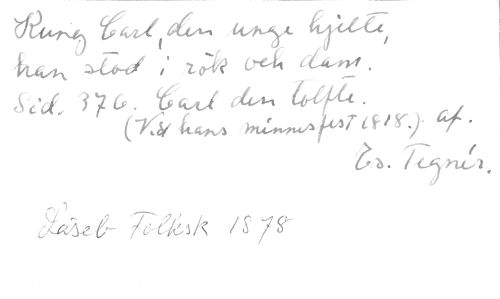 Kung Carl, den unge hjelte,
han stod i rök och dam.
Sid. 376. Carl den tolfte.
(Vid hans minnesfest 1818.) af.
Es. Tegnér.
Läseb Folksk 1878